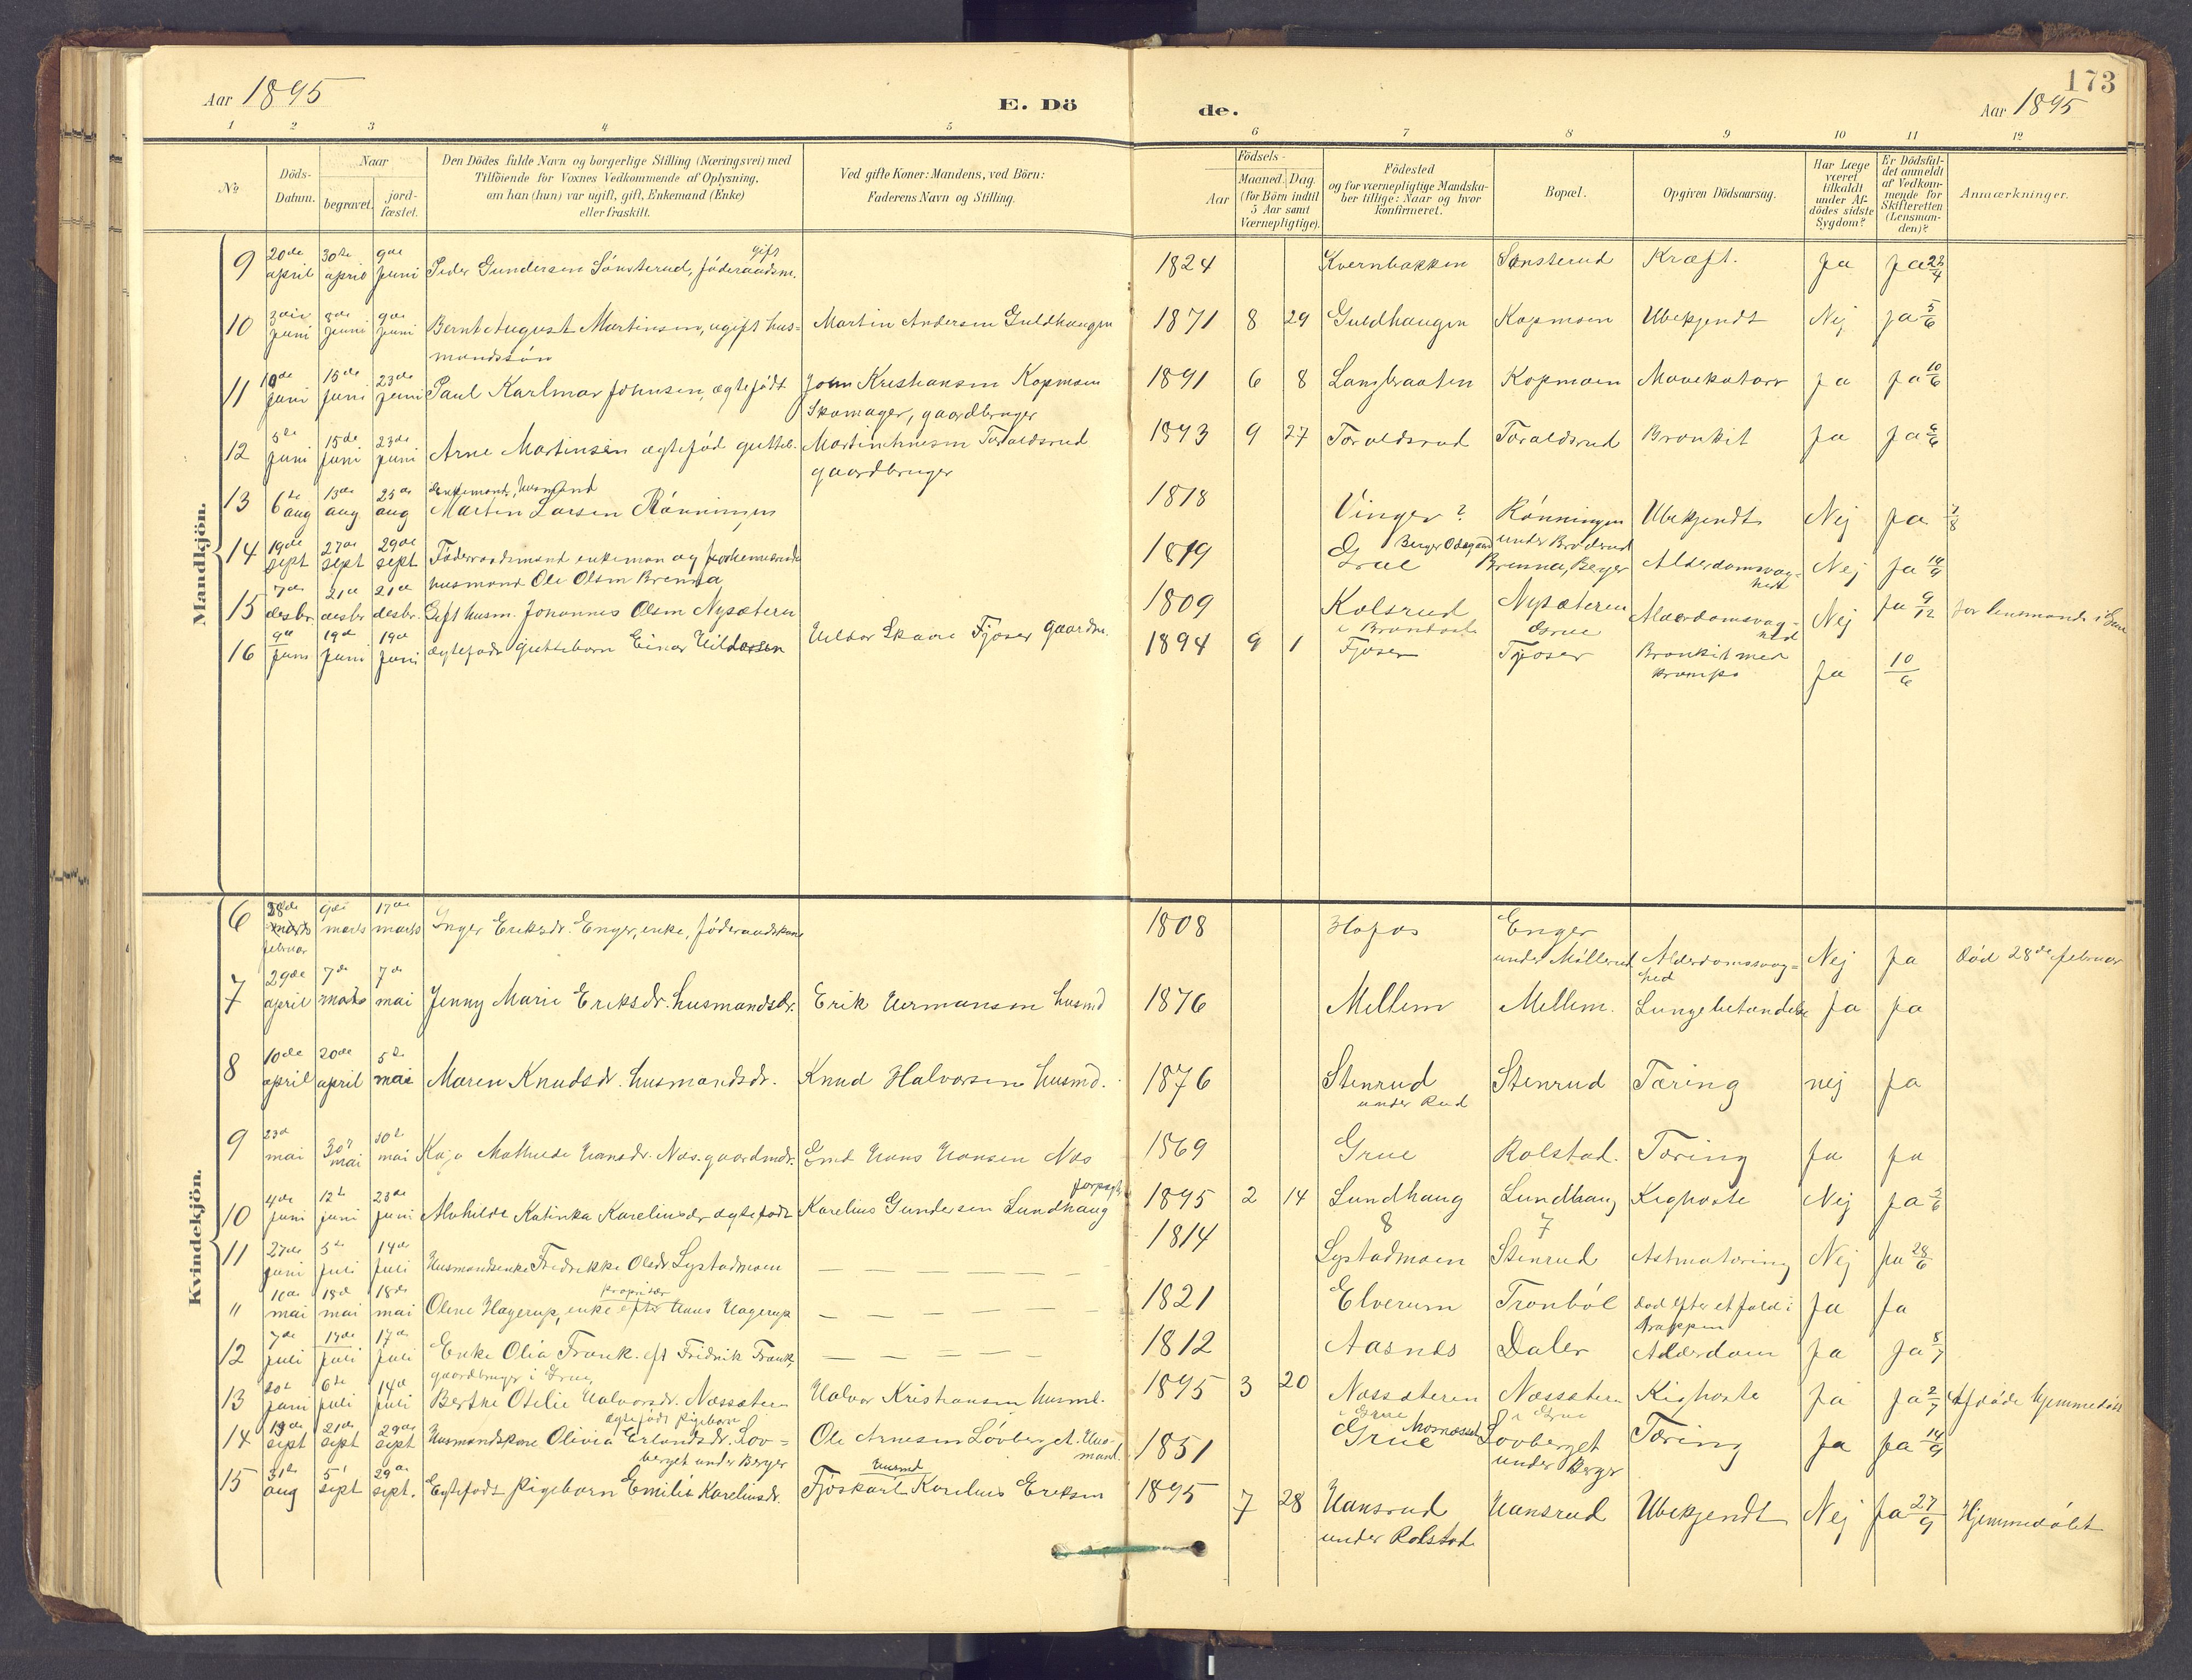 173
Aar 1895 E. Dö de. Aar 1895
1 2 3 4 5 6 7 8 9 10 11 12
No
Döds-Datum.
Naar
begravet.
jord-fæstet.
Den Dödes fulde Navn og borgerlige Stilling (Næringsvei) med
Tilföiende for Voxnes Vedkommende af Oplysning,
om han (hun) var ugift, gift, Enkemand (Enke)
eller fraskilt.
Ved gifte Koner: Mandens, ved Börn:
Faderens Navn og Stilling.
Födsels-
Aar
Maaned. Dag.
(for Börn indtil
5 Aar samt
Værnepligtige).
Födested
og for værnepligtige Mandska-
ber tillige: Naar og hvor
konfirmeret.
Bopæl.
Opgiven Dödsaarsag.
Har Læge
været
tilkaldt
under Af-
dödes sidste
Sygdom?
Er Dödsfal-
det anmeldt
af Vedkom-
mende for
Skifteretten
(Lensman-
den)?
Anmærkninger.
Mandkjön.
9 20de april 30te april 9de juni Peder Gundersen Sönsterud, föderaadsm. gift 1824 Kvernbakken Sönsterud Kræft. Ja Ja 22/4
10 juni 8de juni 9de juni Bernt August Martinsen, ugift hus= Martin Andersen Guldhaugen 1871 8 29 Guldhaugen Kopmoen Ubekjendt Nej ja 5/6
mandssön
11 10de juni 15de juni 23de juni Paul Karlmar Johnsen, ægtefödt John Kristiansen Kopmoen 1891 6 8 Langbraaten Kopmoen Mavekatarr ja ja 10/6
Skomager, gaardbruger
12 5te juni 15de juni 23de juni Arne Martinsen ægteföd gutteb. Martinhusen Toraldsrud 1893 9 27 Toraldsrud Toraldsrud Bronkit ja ja 6/6
gaardbruger
13 6te aug 13de aug 25de aug Enkemand, husmand
Martin Larsen Rönningen 1818 Vinger? Rönningen Ubekjendt Nej ja 7/8
under Brodsrud
14 19de sept 27de sept 29de sept Föderaadsmand enkeman og forhenværende 1819 Grue Berger Odegaard Brenna, Berger Alderdomsvag= Nej ja
husmand Ole Olsen Brenna hed
15 7de desbr. 21de desbr 21de desbr. Gift husm. Johannes Olsen Nysæteren 1809 Kolsrud Nysæteren Alderdomsvag= Nej ja 9/12 for lensmand i Grue
i Brandval Grue hed
16 9de juni 19de juni 19de juni ægtefödt guttebarn Einar Uildorsen Uildor Skaare Fjoser gaardm. 1894 9 1 Fjoser Fjoser Bronkit med Ja 10/6
krampe
Kvindekjön.
6 28de marts februar 9de marts 17de marts Inger Eriksdr. Enger, enke, föderaadskone 1808 Hofos Enger
under Möllerud Alderdomsvag= Nej Ja död 28de februar
hed
7 29de april 7de marts 7de mai Jenny Marie Eriksdr. husmandsdr. Erik Hermansen husmd 1876 Mellem Mellem. Lungebetændelse Ja ja
8 10de april 20de april 5te mai Maren Knudsdr. husmandsdr. Knud Halvorsen husmd. 1876 Stenrud Stenrud Tæring nej ja
under Rud
9 23de mai 30te mai 30te mai Kaja Mathilde Hansdr. Næs. gaardmdr. Gmd Hans Hansen Næs 1869 Grue Rolstad. Tæring ja ja
10 4de juni 12te juni 23de juni Mathilde Katinka Kareliusdr ægtefödt Karelius Gundersen Lundhaug forpagt. 1895 2 14 Lundhaug Lundhaug Kighoste Nej ja 5/6
8 7
11 27de juni 5te juli 14de juli Husmandsenke Fredrikke Olsdr Lystadmoen — — — — — — 1814 Lystadmoen Stenrud Astmatæring Nej ja 28/6
" 10de mai 18de mai 18de mai Oline Hagerup, enke efter proprietær Hans Hagerup — — — — — 1821 Elverum Tronböl död efter et fald i Ja Ja
trappen
12 7de juli 17de juli 17de juli Enke Olia Frank. eft Fridrik Frank, — — — — — 1812 Aasnes Daler Alderdom Ja Ja 8/7
gaardbruger i Grue
13 30te juni 6te juli 14de juli Berthe Otelie Halvorsdr. Næssæteren Halvor Kristiansen husmd. 1895 3 20 Næssæteren Næssæteren Kighoste Ja Ja 2/7 Afdöde hjemmedöbt
ægtefödt pigebarn i Grue i Grue
14 13de sept 21de sept 29de sept Husmandskone Olivia Erlandsdr. Löv= Ole Arnesen Lövberget. Hus= 1851 Grue Lövberget Tæring ja ja 14/9
berget under Berger mand. under Berger
15 31te aug 5te sept 29de sept. Ægtefödt pigebarn Emilie Kareliusdr. Fjöskarl husmd Karelius Eriksen 1895 7 28 Hansrud Hansrud Ubekjendt Nej ja 27/9 Hjemmedöbt
under Rolstad